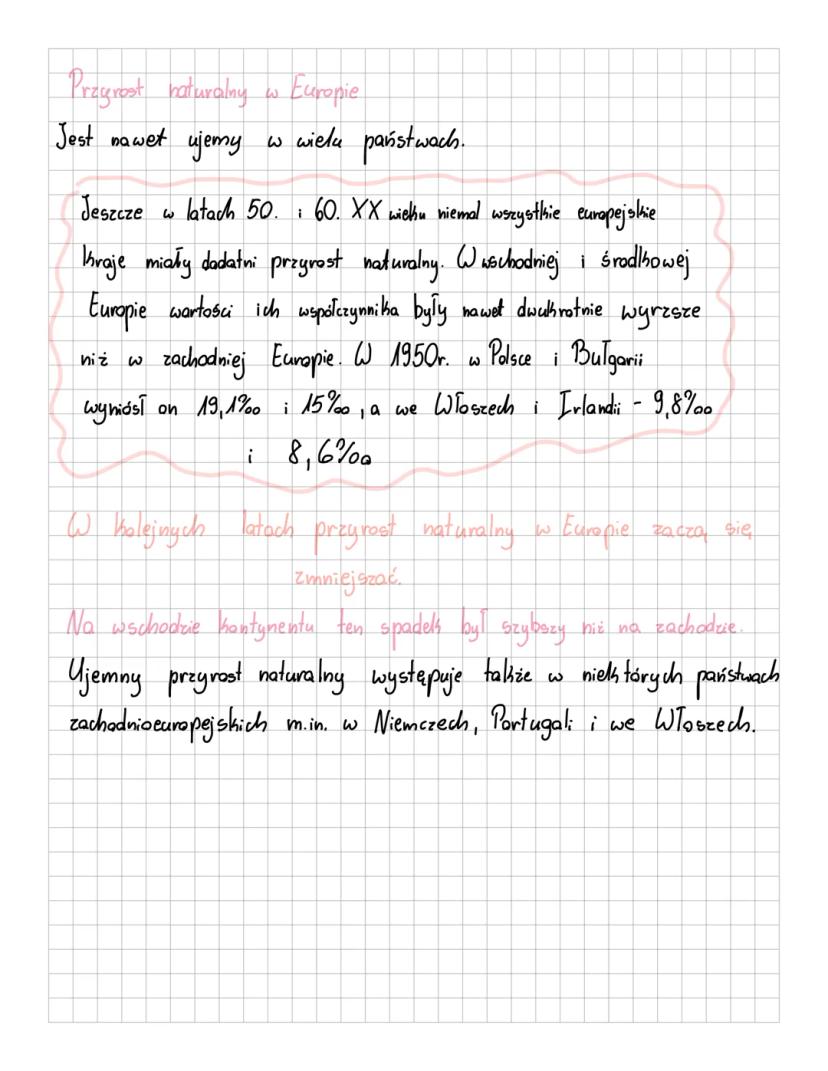 Przyrost naturalny w Europie
Jest nawet ujemy w wielu państwach.
Jeszcze w latach 50. i 60. XX wieku niemal wszystkie europejskie
kraje miały dodatni przyrost naturalny. W wschodniej i środkowej
Europie wartości ich współczynnika były nawet dwukrotnie wyrzsze
niż w zachodniej Europie. W 1950r. w Polsce i Bułgarii
wyniósł on 19,1‰ i 15‰, a we Włoszech i Irlandii - 9,8‰
i 8,6‰
W kolejnych latach przyrost naturalny w Europie zaczą się
zmniejszać.
Na wschodzie kontynentu ten spadek był szybszy niż na zachodzie.
Ujemny przyrost naturalny występuje także w niektórych państwach
zachodnioeuropejskich m.in. w Niemczech, Portugali i we Włoszech.